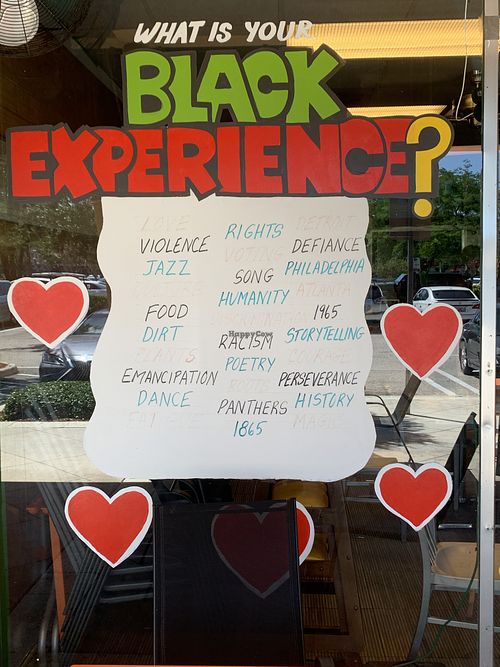 WHAT IS YOUR
BLACK
EXPERIENCE?
LOVE
VIOLENCE
JAZZ
FOOD
DIRT
PLANTS
EMANCIPATION
DANCE
RIGHTS
VOTING
SONG
HUMANITY
DISCRIMINATION
RACISM
POETRY
ROOTS
PANTHERS
1865
DETROIT
DEFIANCE
PHILADELPHIA
ATLANTA
1965
STORYTELLING
COURAGE
PERSEVERANCE
HISTORY
MAGIC
HappyCow